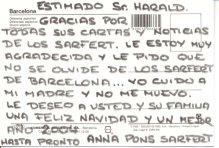 Barcelona
ESTIMADO Sr. HARALD.
GRACIAS POR
TODAS SUS CARTAS Y NOTICIAS
DE LOS SARFERT. LE ESTOY MUY
AGRADECIDA Y LE PIDO QUE
NO SE OLVIDE DE LOS SARFERT
DE BARCELONA... YO CUIDO A
MI MADRE Y NO ME MUEVO.
LE DESEO A USTED Y SU FAMILIA
UNA FELIZ NAVIDAD Y UN MEJOR
AÑO 2004
HASTA PRONTO ANNA PONS SARFERT